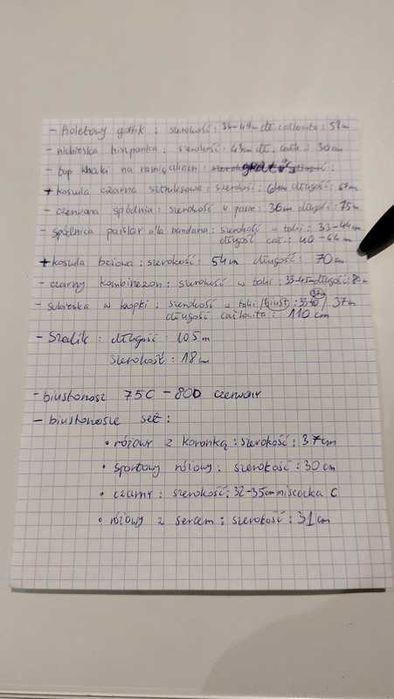 - fioletowy gotik : szerokość : 38-44cm dł. całkowita : 59cm
- niebieska hiszpanka : szerokość : 43cm dł. całk. : 30cm
- top khaki na ramiączkach : gratis
+ koszula czarna sztruksowa : szerokość : 61cm długość : 67cm
- czerwona spódnica : szerokość w pasie : 36cm długość : 75cm
- spódnica paislay a'la bandana : szerokość w talii : 33-44cm
długość cał. : 40-64cm
+ koszula beżowa : szerokość : 54cm długość : 70cm
- czarny kombinezon : szerokość w talii : 33-45cm długość :
- sukienka w kropki : szerokość w talii / biust : 37cm
długość całkowita : 110cm
- szalik : długość 105cm
szerokość : 18cm
- biustonosz 75C - 80D czerwony
- biustonosze set :
• różowy z koronką : szerokość : 37cm
• sportowy różowy : szerokość : 30cm
• czarny : szerokość : 32-35cm miseczka C
• różowy z sercem : szerokość : 31cm